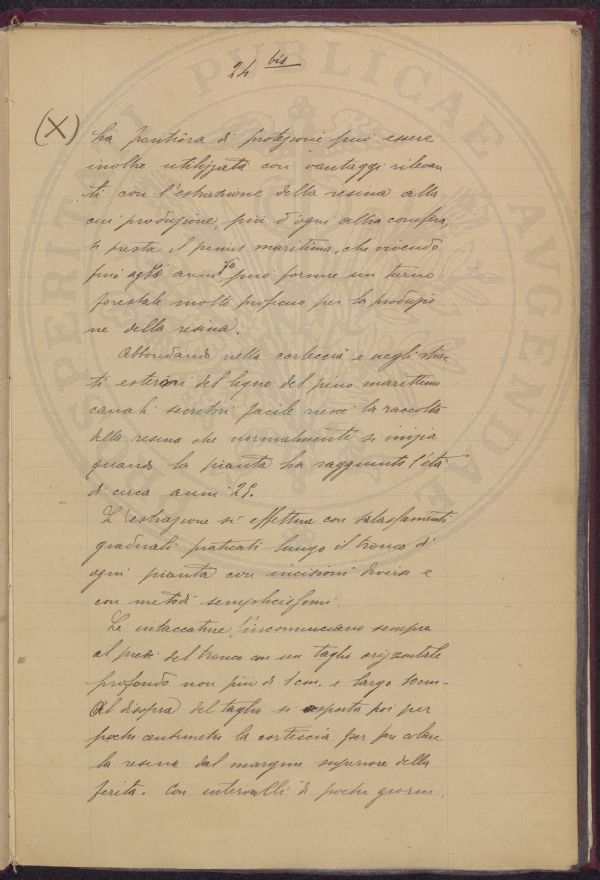 24 bis
(X) La pantiera di protezione può essere
inoltre utilizzata con vantaggi rilevan
ti con l'estrazione della resina alla
cui produzione, più d'ogni altra conifera,
si presta il pinus maritima, che vivendo
fino agli anni 70 può fornire un turno
forestale molto proficuo per la produzio
ne della resina.
Abbondando nella corteccia e negli stra-
ti esteriori del legno del pino marittimo
canali secretori facile riesce la raccolta
della resina che normalmente si inizia
quando la pianta ha raggiunto l'età
di circa anni 25.
L'estrazione si effettua con salassamenti
graduali praticati lungo il tronco di
ogni pianta con incisioni diverse e
con metodi semplicissimi.
Le intaccature incominciano sempre
al piede del tronco con un taglio orizzontale
profondo non più di 1 cm. e largo 10 cm-
Al disopra del taglio si asporta poi per
pochi centimetri la corteccia per far colare
la resina dal margine superiore della
ferita. Con intervalli di pochi giorni,
PERITAT PUBLICAE AUGENDAE